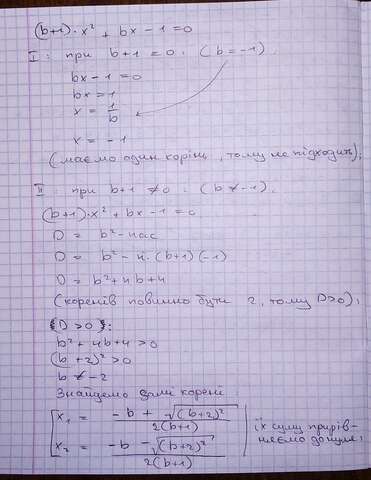 (b+1)·x² + bx − 1 = 0
I : при b+1 = 0 : (b = −1).
bx − 1 = 0
bx = 1
x = 1/b
x = −1
(маємо один корінь, тому не підходить);
II : при b+1 ≠ 0 : (b ≠ −1).
(b+1)·x² + bx − 1 = 0
D = b² − 4ac
D = b² − 4·(b+1)(−1)
D = b² + 4b + 4
(коренів повинно бути 2, тому D>0);
(D > 0):
b² + 4b + 4 > 0
(b + 2)² > 0
b ≠ −2
Знайдемо самі корені:
x₁ = (−b + √(b+2)²) / 2(b+1)
x₂ = (−b − √(b+2)²) / 2(b+1)
їх суму прирів-
нюємо до нуля;